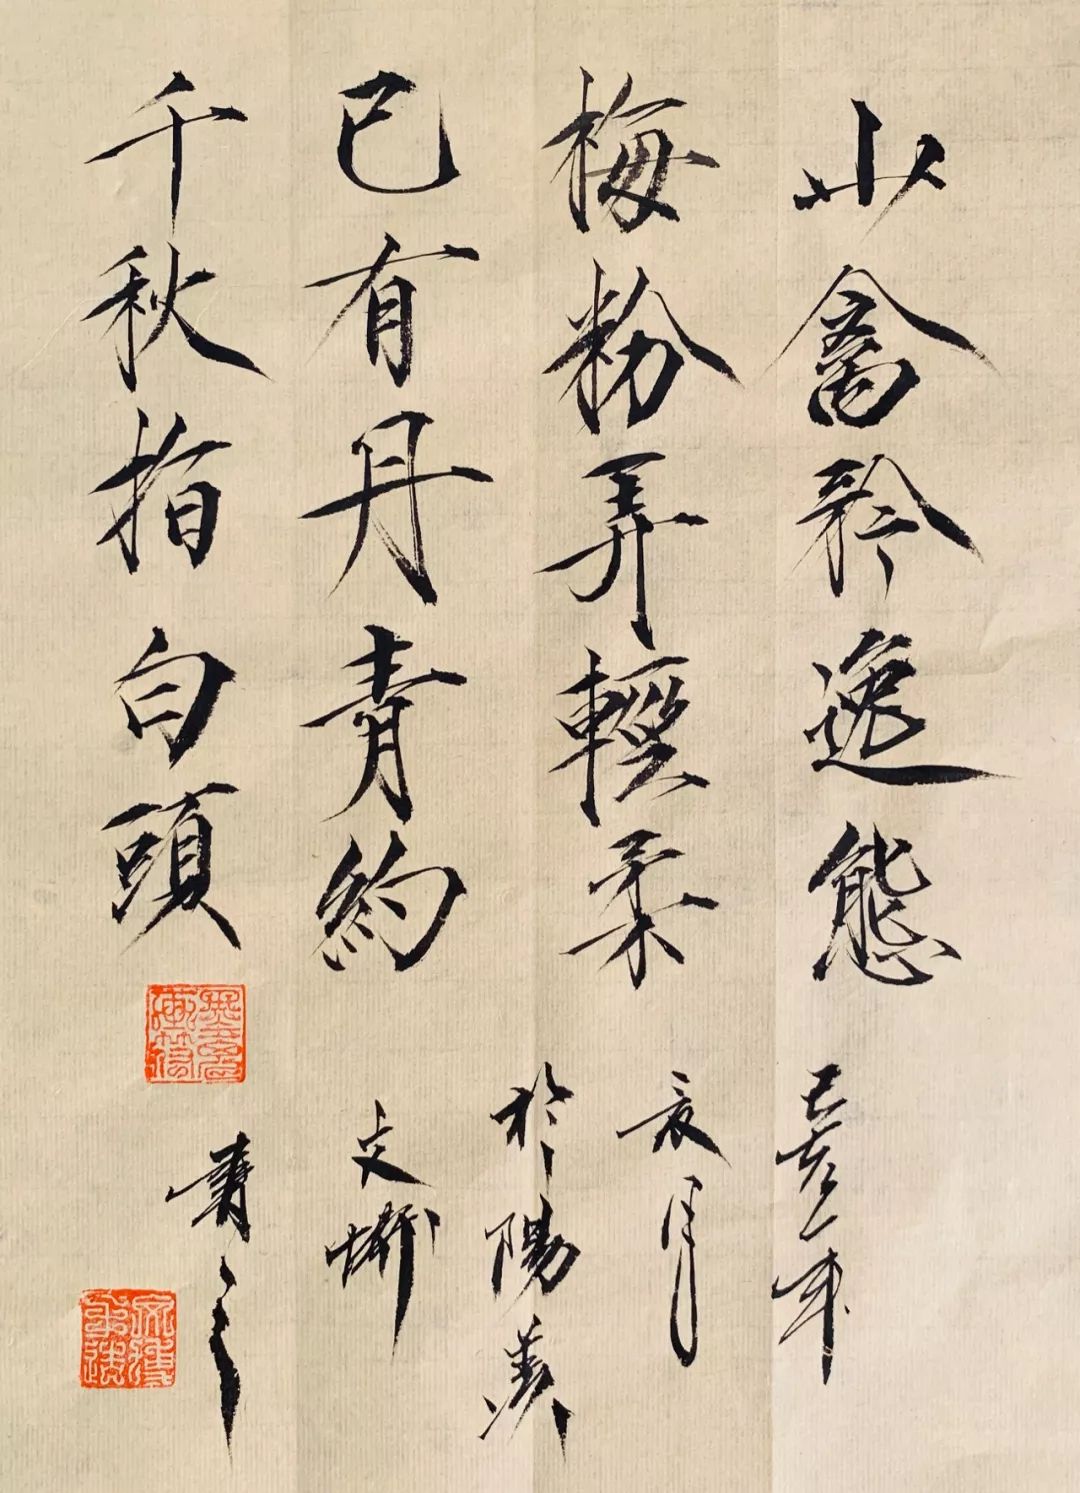 山禽矜逸態
梅粉弄輕柔
已有丹青約
千秋指白頭
己亥年
亥月
於陽羨
文
書之